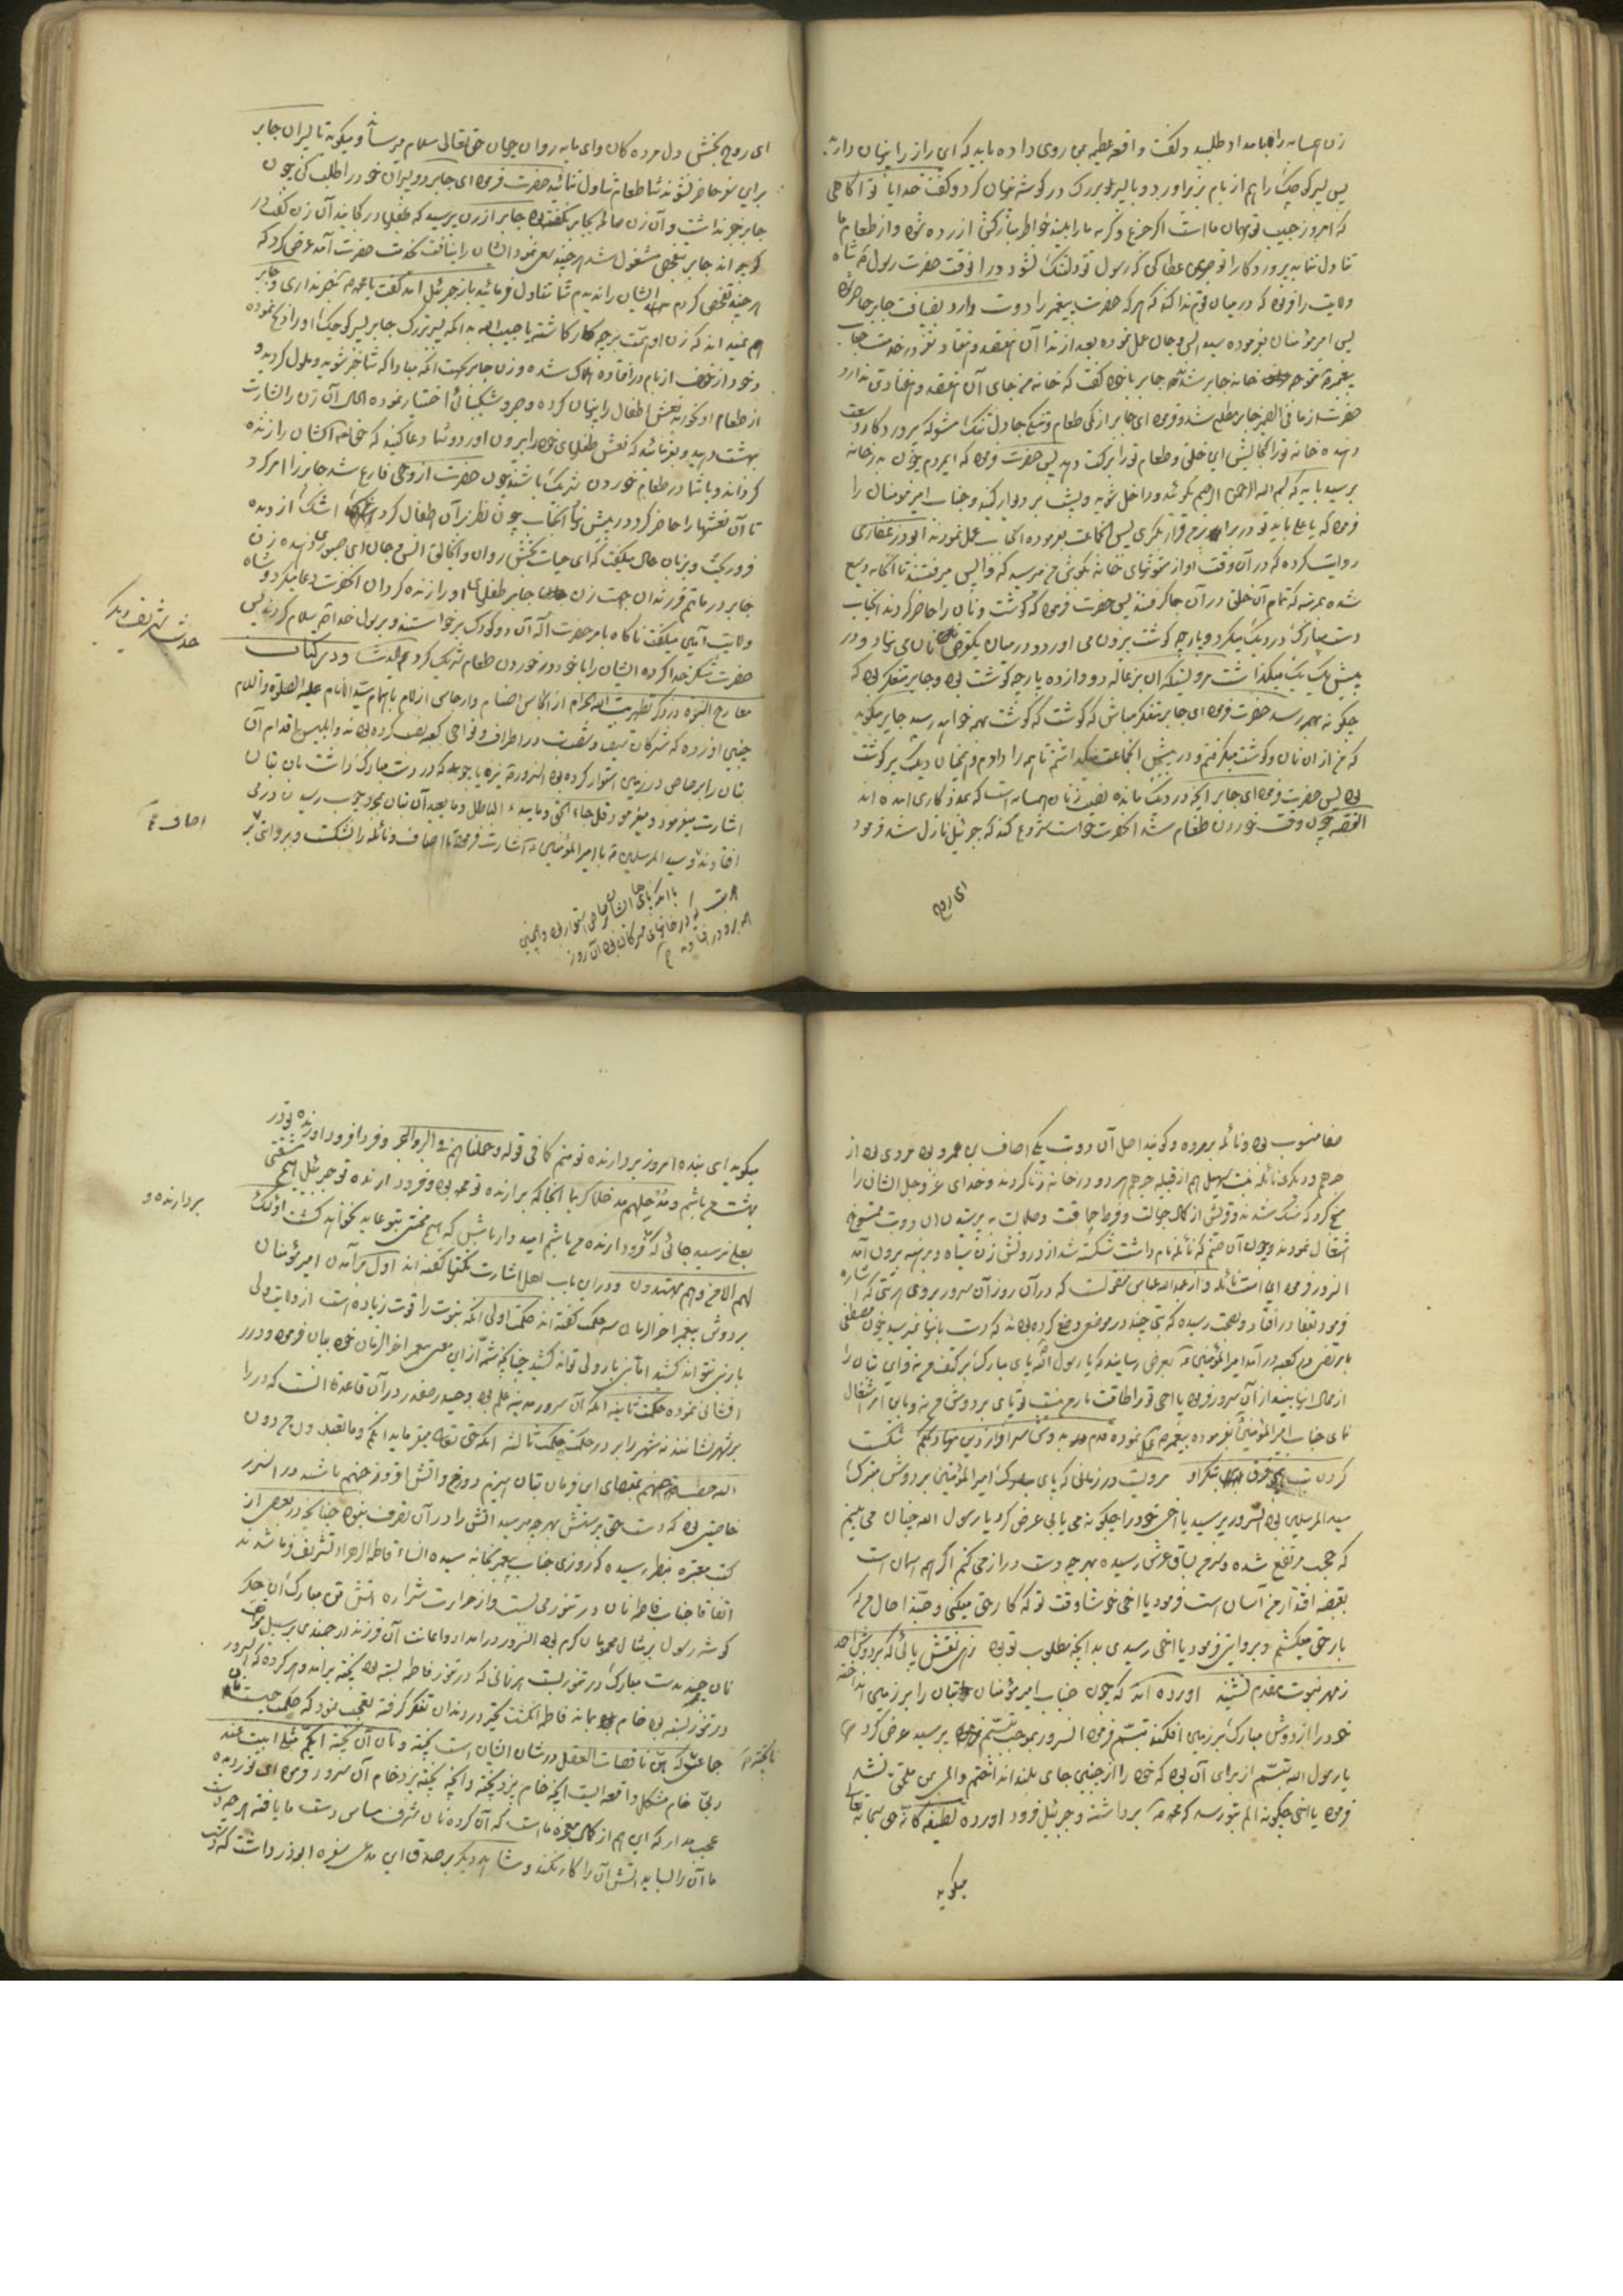 زن همسایه را بامداد طلبید و گفت واقعه عظیمه مرا روی داده باید که این راز را پنهان دارید
پس پسر کوچک را هم از بام بزیر آورد و با پسر بزرگ در گوشه پنهان کرد و گفت خدایا تو آگاهی
که امروز حبیب تو مهمان ما است اگر جزع و گریه ما را ببیند خاطر مبارکش آزرده شود و از طعام ما
تناول ننماید پروردگارا تو صبری عطا کن که رسول تو دلتنگ نشود در آنوقت حضرت رسول شاه
ولایت را فرمود که در میان قوم ندا کند که هر که حضرت پیغمبر را دوست دارد بضیافت جابر حاضر شود
پس امیر مؤمنان بفرموده سید انس و جان عمل نموده بعد از ندا آن هفتصد و هفتاد نفر در خدمت جناب
پیغمبر متوجه خانه جابر شدند جابر با خود گفت که خانه من جای آن هفتصد و هفتاد تن ندارد
حضرت از ما فی الضمیر جابر مطلع شد و فرمود ای جابر از کمی طعام و تنگی جا دل تنگ مشو که پروردگار وسعت
دهنده خانه تو را گنجایش این خلق و طعام تو را برکت دهد پس حضرت فرمود که ای مردم چون بدر خانه
برسید باید که بسم الله الرحمن الرحیم بگوئید و داخل شوید و پشت بر دیوار کنید و جناب امیر مؤمنان را
فرمود که یا علی باید تو در برابر من قرار بگیری پس آن جماعت بفرموده آنجناب عمل نمودند ابوذر غفاری
روایت کرده که در آن وقت آواز ستونهای خانه بگوش من میرسید که واپس میرفتند تا آن خانه وسیع
شده بمرتبه که تمام آن خلق در آن جا گرفتند پس حضرت فرمود که گوشت و نان را حاضر کردند آنجناب
دست مبارک در دیگ میکرد و پارچه گوشت بیرون می آورد و در میان یکقرص نان می نهاد و در
پیش یک یک میگذاشت مرویست که آن بزغاله دوازده پارچه گوشت بود و جابر متفکر بود که
چگونه بهمه رسد حضرت فرمود ای جابر متفکر مباش که گوشت که گوشت بهمه خواهد رسید جابر میگوید
که من از آن نان و گوشت میگرفتم و در پیش آنجماعت میگذاشتم تا همه را دادم و همچنان دیگ پر گوشت
بود پس حضرت فرمود ای جابر آنچه در دیگ مانده نصیب زنان همسایه است که بمددکاری آمده اند
القصه چون وقت خوردن طعام شد آنحضرت خواست شروع کند که جبرئیل نازل شد فرمود
ای روح
ای روح بخش دل مرده گان وای مایه روان جهان حق تعالی سلام میرساند و میگوید تا پسران جابر
برای تو حاضر نشوند شما طعام تناول ننمائید حضرت فرمود ای جابر دو پسران خود را طلب کن چون
جابر خبر نداشت و آن زن صالحه بجابر نگفته بود جابر از زن پرسید که طفلان در کجایند آن زن گفت در
کوچه اند جابر بتفحص مشغول شد هر چند سعی نمود ایشان را نیافت بخدمت حضرت آمد عرض کرد که
هر چند تفحص کردم ایشان را ندیدم شما تناول فرمائید باز جبرئیل آمد گفت یا محمد تو خبر نداری و جابر
هم نمیداند که زن او همت بر چه کار گماشته یا حبیب الله بدانکه پسر بزرگ جابر پسر کوچک او را ذبح نموده
و خود از خوف از بام در افتاده هلاک شده و زن جابر بجهت آنکه مبادا که شما خبر شوید و ملول گردید و
از طعام او نخورید نعش اطفال را پنهان کرده و صبر و شکیبائی اختیار نموده الحال آن زن را بشارت
بهشت دهید و بفرمائید که نعش طفلهای خود را بیرون آورد و شما دعا کنید که حق تعالی ایشان را زنده
گرداند و با شما در طعام خوردن شریک باشند چون حضرت از وحی فارغ شد جابر را امر کرد
تا آن نعشها را حاضر کرد در پیش آنجناب چون نظر بر آن اطفال کرد اشک از دیده
فرو ریخت و بزبان حال میگفت که ای حیات بخش روان و ای خالق انس و جان ای صبوری دهنده زن
جابر در ماتم فرزندان بجهت زن جابر طفلهای او را زنده گردان آنحضرت دعا میکرد و شاه
ولایت آمین میگفت ناگاه بامر حضرت اله آن دو کودک برخواستند و بر رسول خدا سلام کردند پس
حضرت شکر خدا کرده ایشان را با خود در خوردن طعام شریک کرد و در کتاب
معارج النبوه در ذکر تطهیر بیت الله الحرام از انجاس اصنام و ارجاس ازلام باهتمام سید الانام علیه الصلوة والسلام
چنین آورده که مشرکان سیصد و شصت بت در اطراف و نواحی کعبه نصب کرده بودند و ابلیس اقدام آن
بتان را برصاص در زمین استوار کرده بود آنسرور نیزه یا چوبی که در دست مبارک داشت بآن بتان
اشارت مینمود و میفرمود قل جاء الحق و ما یبدء الباطل و ما یعید آن بتان بمجرد چوب رسیدن در می
افتادند و سید المرسلین با امیر المؤمنین اشارت فرمود تا اصاف و نائله را بشکست و بروایتی
با آنکه پای ایشان برصاص استوار بود و همچنین
هر بت که در خانهای مشرکان بود آن روز
همه برو در افتادند
حدیث شریف دیگر
اصاف
صفا منصوب بود و نائله بمروه و گویند اصل آن دو بت یکی اصاف بن عمرو بود مردی بود از
جرهم و دیگری نائله بنت سهیل هم از قبیله جرهم هر دو در خانه زنا کردند و خدای عز و جل ایشان را
مسخ کرد که سنگ شدند و قریش از کمال جهالت و فرط حماقت و ضلالت به پرستیدن آن دو بت ممسوخ
اشتغال نمودند و چون آن صنم که نائله نام داشت شکسته شد از درونش زن سیاه و برهنه بیرون آمد
آنسرور فرمود این است نائله و از عبدالله عباس منقولست که در آن روز آن سرور بروی هر بتی که اشاره
فرمود بقفا در افتاد و بصحت رسیده که بتی چند در موضع وضع کرده بودند که دست بآنها نمیرسید چون مصطفی
با مرتضی در کعبه در آمد امیر المؤمنین بعرض رسانید که یا رسول الله پای مبارک بر کتف من نه و این بتان را
از محال اینها بینداز آن سرور فرمود یا اخی تو را طاقت بار من نیست تو پای بر دوش من نه و باین امر اشتغال
نمای جناب امیر المؤمنین بفرموده پیغمبر عمل نموده قدم بدوش سرافراز دین نهاد شکست
کردن بت مرویست در زمانی که پای مبارک امیر المؤمنین بر دوش متبرک
سید المرسلین بود آنسرور پرسید یا اخی خود را چگونه می یابی عرض کرد یا رسول الله چنان می بینم
که حجب مرتفع شده و سر من بساق عرش رسیده بهر چه دست دراز می کنم اگر همه آسمان است
بقبضه اقتدار من آسان است فرمود یا اخی خوشا وقت تو که کار حق میکنی و حبذا حال من که
بار حق میکشم و بروایتی فرمود یا اخی رسیدی بدانچه مطلوب تو بود زهی نقش پائی که بر دوش احمد
ز مهر نبوت مقدم نشیند آورده اند که چون جناب امیر مؤمنان بتان را بر زمین انداخته
خود را از دوش مبارک بر زمین افکند تبسم فرمود آنسرور موجب تبسم پرسید عرض کرد
یا رسول الله تبسم از برای آن بود که خود را از چنین جای بلند انداختم و المی بمن ملحق نشد
فرمود یا اخی چگونه الم بتو رسد که محمد برداشته و جبرئیل فرود آورده لطیفه کانه حق سبحانه تعالی
میگوید
میگوید ای بنده امروز بردارنده تو منم کما فی قوله و حملناهم فی البر و البحر و فردا فرود آورنده تو در
بهشت من باشم و ندخلهم مدخلا کریما آنجا که بردارنده تو محمد بود و فرود آرنده تو جبرئیل هیچ مشقتی
بعلی نرسید جائی که فرود آرنده من باشم امیدوار باش که هیچ محنتی بتو عاید نخواهد گشت اولئک
لهم الامن و هم مهتدون و در این باب اهل اشارت نکتها گفته اند اول بر آمدن امیر مؤمنان
بر دوش پیغمبر آخر الزمان سه حکمت گفته اند حکمت اولی آنکه نبوت را قوت زیاده است از ولایت ولی
بار نبی نتواند کشید اما نبی بار ولی تواند کشید چنانچه شمه از این معنی پیغمبر آخر الزمان خود بیان فرمود و در
افشائی نموده حکمت ثانیه آنکه آن سرور مدینه علم بود و حیدر صفدر در آن قاعده آنست که در را
بر شهر نشانند نه شهر را بر در حکمت ثالثه آنکه حق تعالی میفرماید انکم و ما تعبدون من دون
الله حصب جهنم بمقتضای این فرمان بتان هیزم دوزخ و آتش افروز جهنم باشند در آنسرور
خاصیتی بود که دست حق پرستش بهر چه میرسید آتش را در آن تصرف نبود چنانچه در بعضی از
کتب معتبره بنظر رسیده که روزی جناب پیغمبر بخانه سیده النساء فاطمه الزهراء تشریف فرما شدند
اتفاقا جناب فاطمه نان در تنور می بست و از حرارت شراره آتش تن مبارک آن جگر
گوشه رسول بر مثال محمومان گرم بود آنسرور در امداد و اعانت آن فرزند ارجمند بر سبیل
نان چند بدست مبارک در تنور بست هر نانی که در تنور فاطمه بسته بود پخته بر آمد و هر گرده که آنسرور
در تنور بسته بود خام بماند فاطمه انگشت تحیر در دندان تفکر گرفته تعجب نمود که حکمت چیست نان
جماعتی که هن ناقصات العقل در شان ایشان است پخته و نان آن پخته انکم مثلی ابیت عند
ربی خام مشکل واقعه ایست آنچه خام پزد پخته و آنچه پخته پزد خام آن سرور فرمود ای نور دیده
عجب مدار که این هم از کمال معجزه ما است که آن گرده نان شرف مساس دست ما یافته هر چه دست
ما آن را بساید آتش آن را کار نکند و شاهد دیگر بر صدق این مدعی سفره ابوذر داشت که
بردارنده و